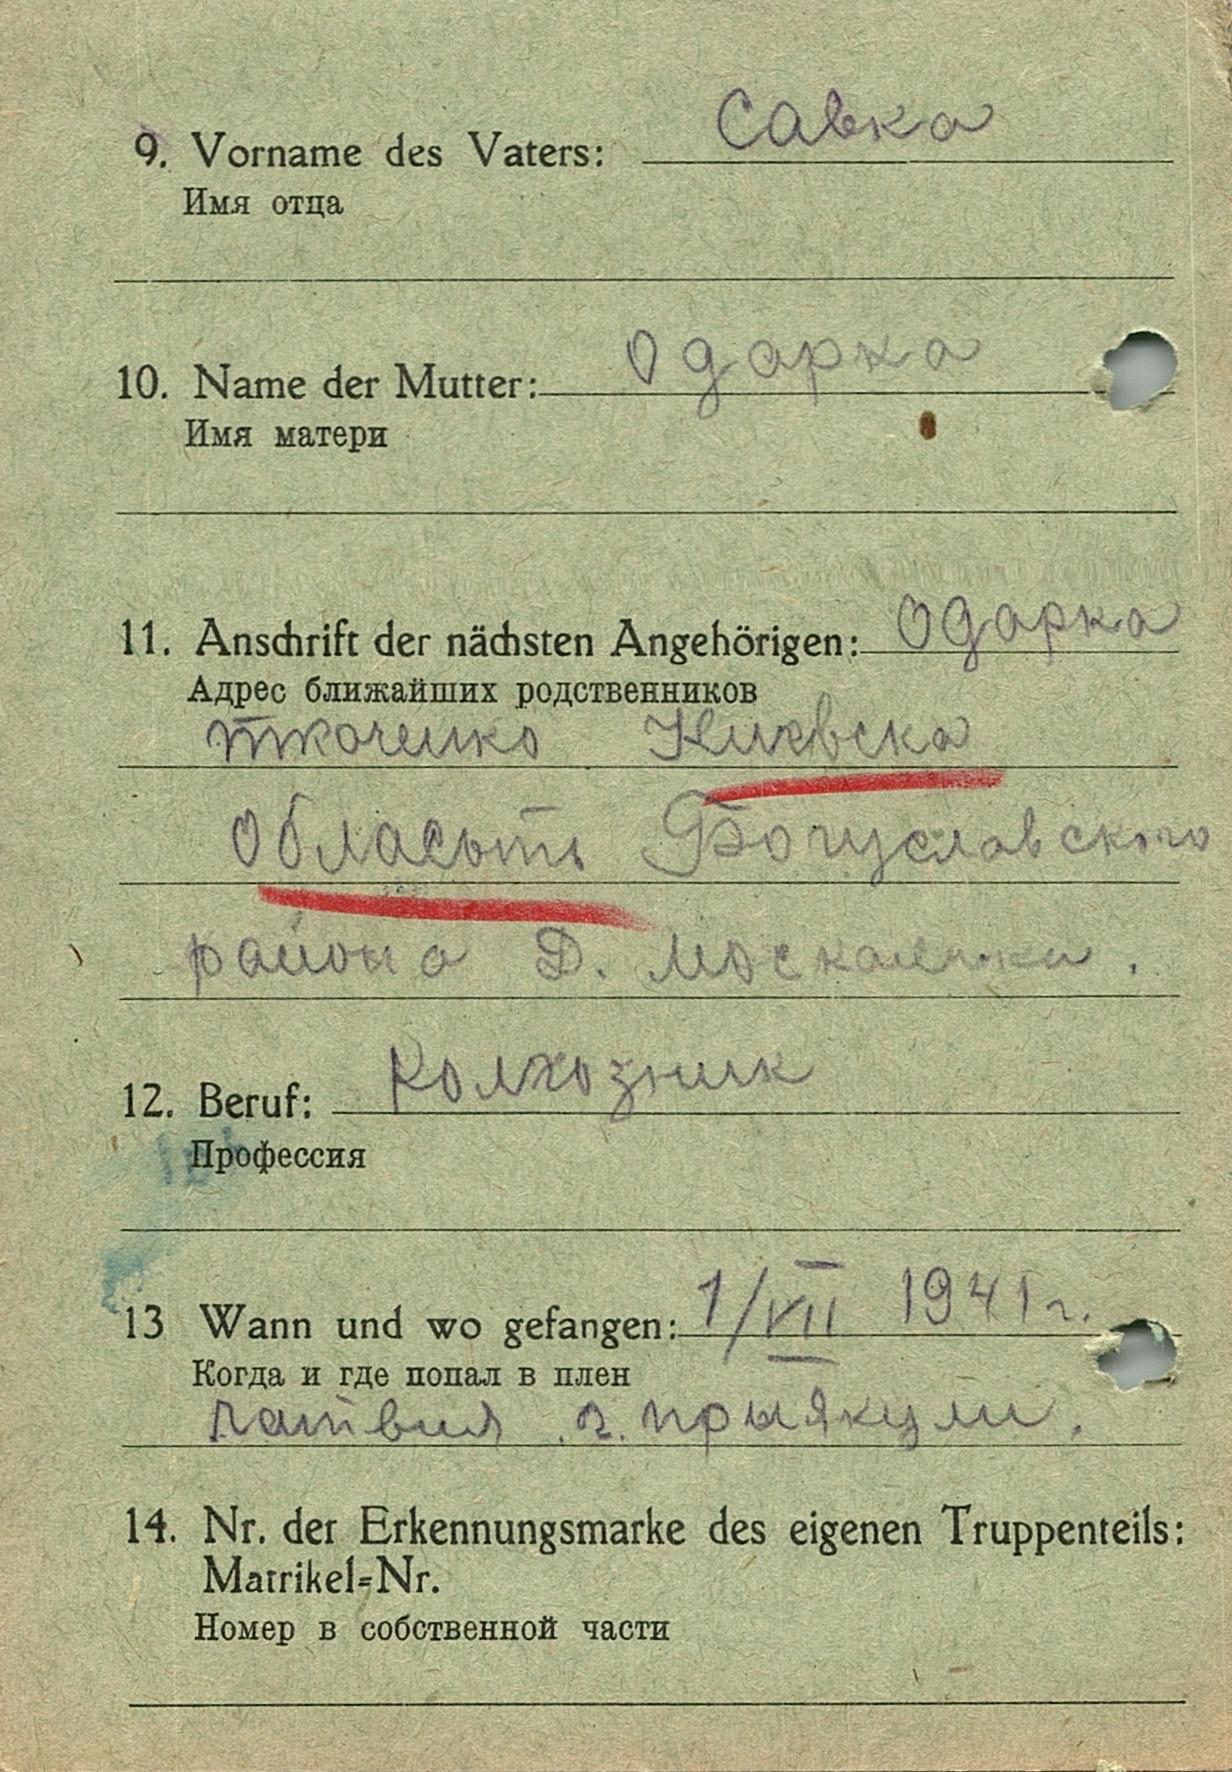 9. Vorname des Vaters: Савка
Имя отца
10. Name der Mutter: Одарка
Имя матери
11. Anschrift der nächsten Angehörigen: Одарка
Адрес ближайших родственников
Ткаченко Киевска
Обласьть Богуславского
района Д. Москаленки.
12. Beruf: Колхозник
Профессия
13 Wann und wo gefangen: 1/VII 1941 г.
Когда и где попал в плен
Латвия г. Прыякули.
14. Nr. der Erkennungsmarke des eigenen Truppenteils:
Matrikel=Nr.
Номер в собственной части